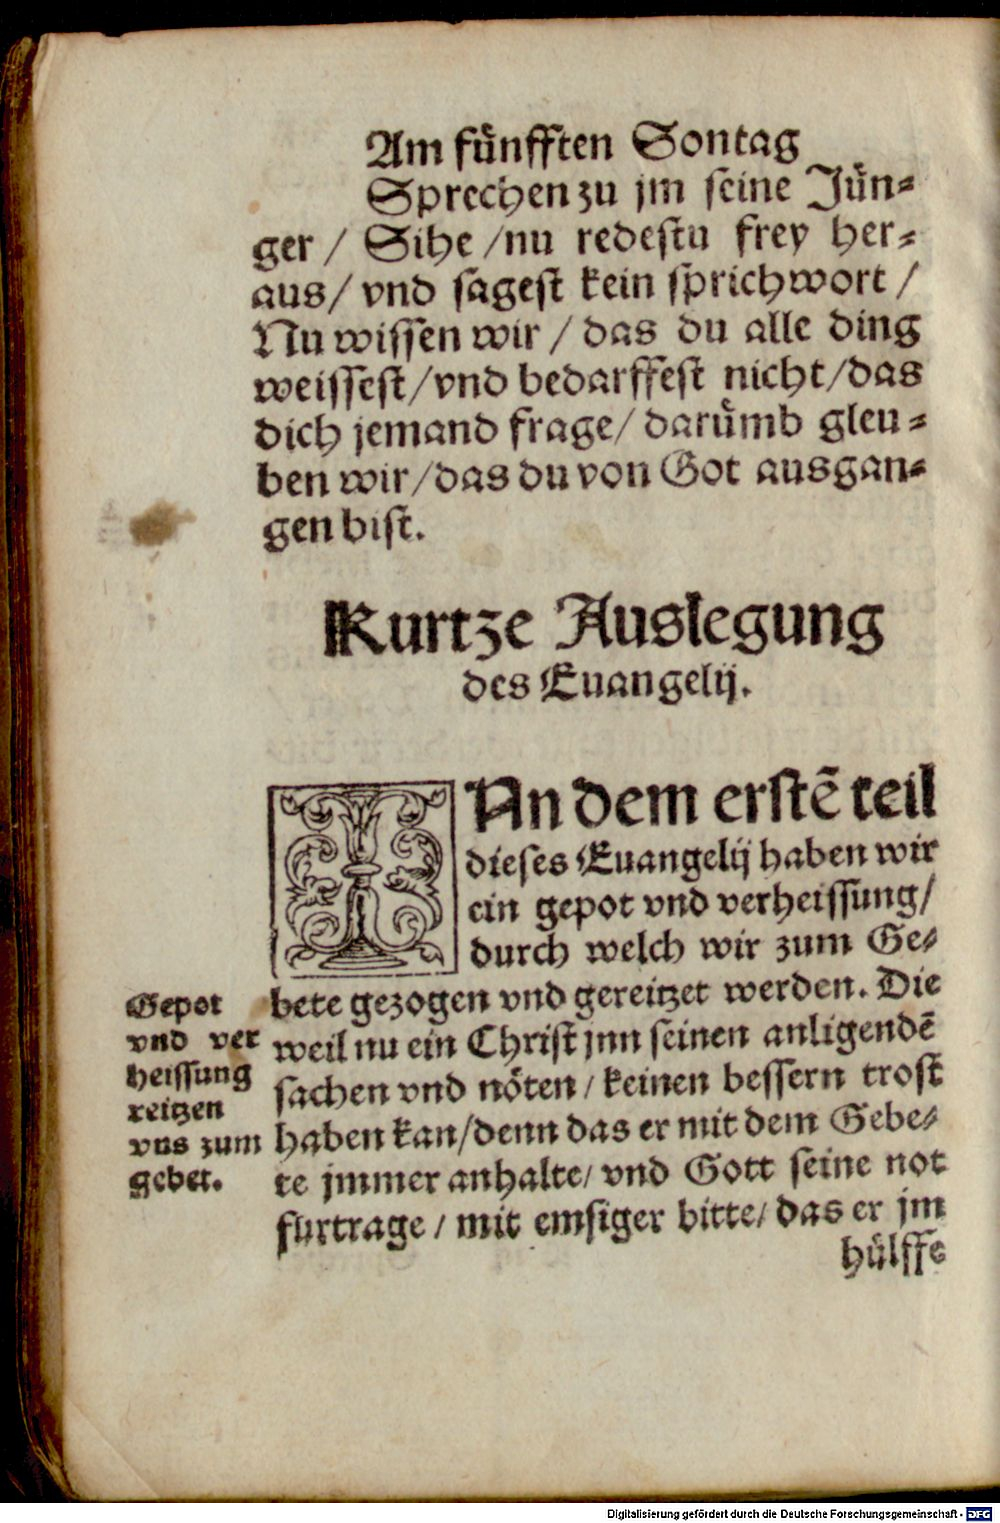 Am fuͤnfften Sontag
Sprechen zu jm seine Juͤn⸗
ger / Sihe /nu redestu frey her⸗
aus/ vnd sagest kein sprichwort /
Nu wissen wir / das du alle ding
weissest/vnd bedarffest nicht/das
dich jemand frage/ daruͤmb gleu⸗
ben wir/das du von Got ausgan⸗
gen bist.
Kurtze Auslegung
des Euangelij.
IAn dem erstē teil
dieses Euangelij haben wir
ein gepot vnd verheissung/
durch welch wir zum Ge⸗
bete gezogen vnd gereitzet werden. Die
weil nu ein Christ jnn seinen anligendē
sachen vnd noͤten/ keinen bessern trost
haben kan/denn das er mit dem Gebe⸗
te jmmer anhalte/ vnd Gott seine not
furtrage / mit emsiger bitte/ das er jm
huͤlffe
Gepot
vnd ver
heissung
reitzen
vns zum
gebet.
Digitalisierung gefördert durch die Deutsche Forschungsgemeinschaft - DFG